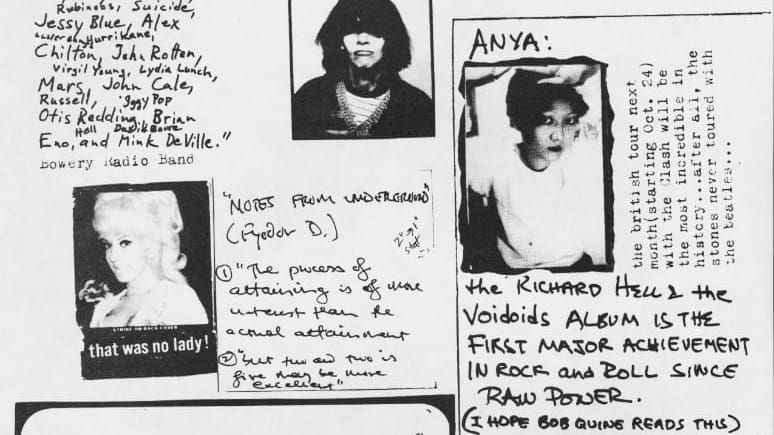 Rubinoos, Suicide,
Jessy Blue, Alex
Hurrikane,
Chilton, John Rotten,
Virgil Young, Lydia Lunch,
Mars, John Cale,
Russell, Iggy Pop
Otis Redding, Brian
Hell David Bowie
Eno, and Mink DeVille."
Bowery Radio Band
that was no lady!
"NOTES FROM UNDERGROUND"
(Fyodor D.)
① "The process of
attaining is of more
interest than the
actual attainment
② "but two and two is
five may be more
excellent"
ANYA:
the british tour next
month(starting Oct. 24)
with the Clash will be
the most incredible in
history...after all, the
stones never toured with
the beatles...
the RICHARD HELL & the
Voidoids ALBUM IS THE
FIRST MAJOR ACHIEVEMENT
IN ROCK and ROLL SINCE
RAW POWER.
(I HOPE BOB QUINE READS THIS)